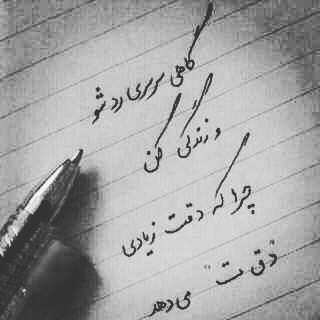 گاهی سرسری رد شو
و زندگی کن
چرا که دقت زیادی
"دق ت" می دهد